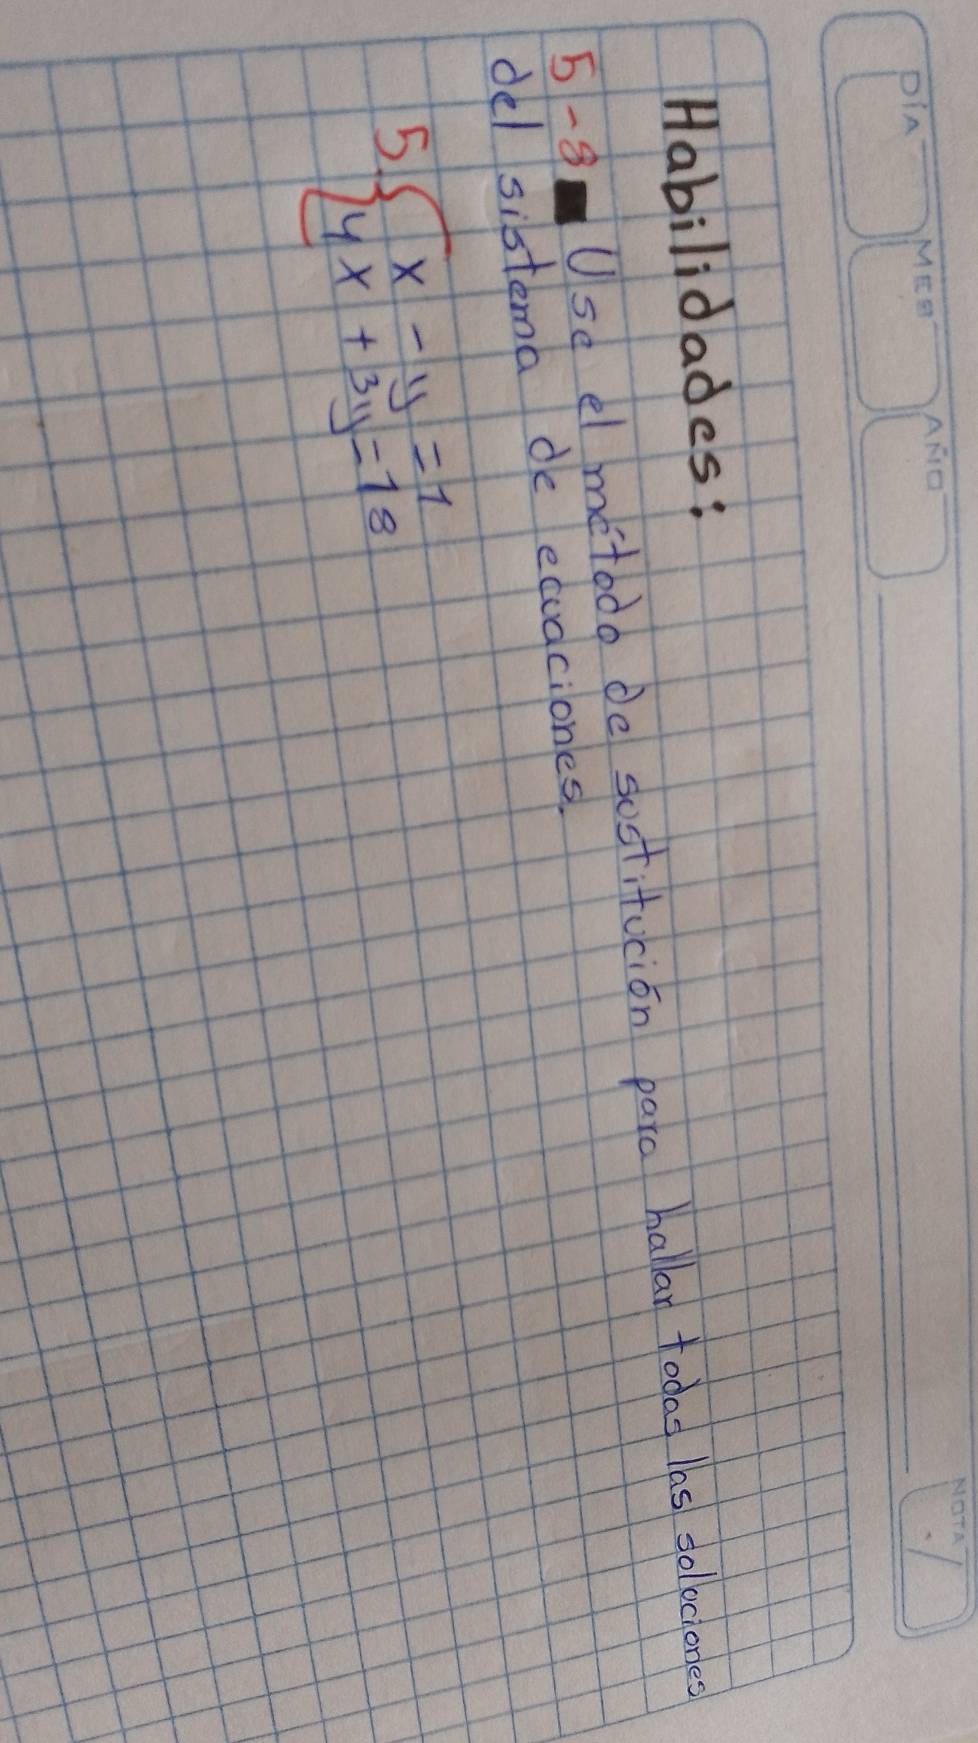 DÍA MES AÑO NOTA
Habilidades:
5-8 ■ Use el método de sustitución para hallar todas las soluciones
del sistema de ecuaciones.
5. { x - y = 1
4x + 3y = 18